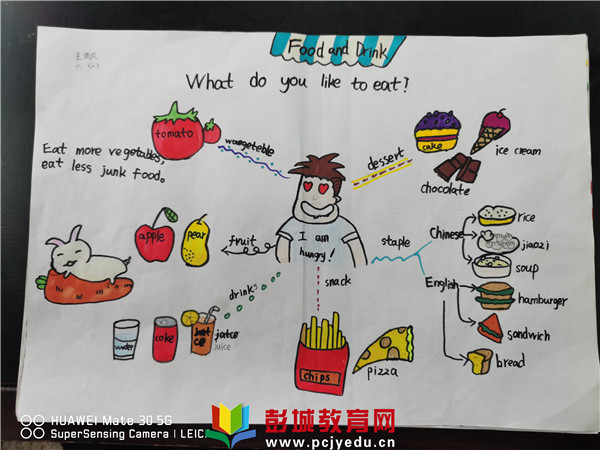 Food and Drink
What do you like to eat?
tomato
wegeteble
Eat more vegetables,
eat less junk food.
dessert
cake
ice cream
chocolate
apple
pear
fruit
I am
hungry!
staple
Chinese
rice
jiaozi
soup
English
hamburger
sandwich
bread
drinks
water
coke
juice
snack
chips
pizza
HUAWEI Mate 30 5G
SuperSensing Camera | LEIC
彭城教育网
www.pcjyedu.cn